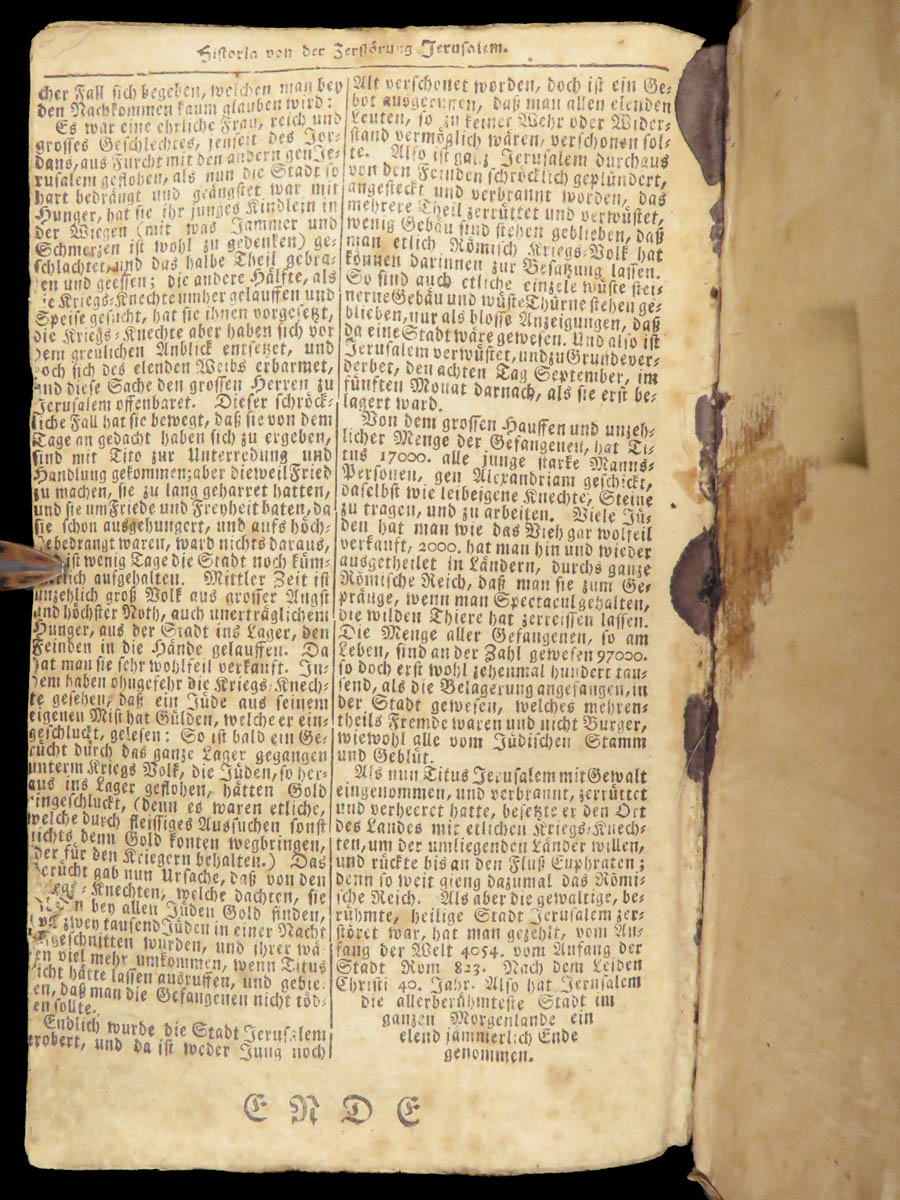 Historia von der Zerstörung Jerusalem.
cher Fall sich begeben, welchen man bey
den Nachkommen kaum glauben wird:
Es war eine ehrliche Frau, reich und
grosses Geschlechtes, jenseit des Jor-
dans, aus Furcht mit den andern gen Je-
rusalem geflohen, als nun die Stadt so
hart bedrängt und geängstet war mit
Hunger, hat sie ihr junges Kindlein in
der Wiegen (mit was Jammer und
Schmerzen ist wohl zu gedenken) ge-
schlachtet, und das halbe Theil gebra-
en und geessen; die andere Hälfte, als
e Kriegs-Knechte umher gelauffen und
Speise gesucht, hat sie ihnen vorgesetzt,
die Kriegs-Knechte aber haben sich vor
dem greulichen Anblick entsetzet, und
och sich des elenden Weibs erbarmet,
und diese Sache den grossen Herren zu
Jerusalem offenbaret. Dieser schröck-
liche Fall hat sie bewegt, daß sie von dem
Tage an gedacht haben sich zu ergeben,
sind mit Tito zur Unterredung und
Handlung gekommen; aber dieweil Fried
zu machen, sie zu lang geharret hatten,
und sie um Friede und Freyheit baten, da
sie schon ausgehungert, und aufs höch-
ebedrangt waren, ward nichts daraus,
ist wenig Tage die Stadt noch küm-
lich aufgehalten. Mittler Zeit ist
unzehlich groß Volk aus grosser Angst
und höchster Noth, auch unerträglichem
Hunger, aus der Stadt ins Lager, den
Feinden in die Hände gelauffen. Da
hat man sie sehr wohlfeil verkauft. In-
dem haben ohngefehr die Kriegs-Knech-
te gesehen, daß ein Jüde aus seinem
eigenen Mist hat Gülden, welche er ein-
geschluckt, gelesen: So ist bald ein Ge-
rücht durch das ganze Lager gegangen
unterm Kriegs Volk, die Jüden, so her-
aus ins Lager geflohen, hätten Gold
eingeschluckt, (denn es waren etliche,
welche durch fleissiges Aussuchen sonst
nichts denn Gold konten wegbringen,
der für den Kriegern behalten.) Das
Gerücht gab nun Ursache, daß von den
Kriegs-Knechten, welche dachten, sie
bey allen Jüden Gold finden,
zwey tausend Jüden in einer Nacht
geschnitten wurden, und ihrer wä-
en viel mehr umkommen, wenn Titus
nicht hätte lassen ausruffen, und gebie-
en, daß man die Gefangenen nicht töd-
en sollte.
Endlich wurde die Stadt Jerusalem
erobert, und da ist weder Jung noch
Alt verschonet worden, doch ist ein Ge-
bot ausgerufen, daß man allen elenden
Leuten, so zu keiner Wehr oder Wider-
stand vermöglich wären, verschonen sol-
te. Also ist ganz Jerusalem durchaus
von den Feinden schröcklich geplündert,
angesteckt und verbrannt worden, das
mehrere Theil zerrüttet und verwüstet,
wenig Gebäu sind stehen geblieben, daß
man etlich Römisch Kriegs-Volk hat
können darinnen zur Besatzung lassen.
So sind auch etliche einzele wüste stei-
nerne Gebäu und wüste Thürne stehen ge-
blieben, nur als blosse Anzeigungen, daß
da eine Stadt wäre gewesen. Und also ist
Jerusalem verwüstet, und zu Grunde ver-
derbet, den achten Tag September, im
fünften Monat darnach, als sie erst be-
lagert ward.
Von dem grossen Hauffen und unzeh-
licher Menge der Gefangenen, hat Ti-
tus 17000. alle junge starke Manns-
Personen, gen Alexandriam geschickt,
daselbst wie leibeigene Knechte, Steine
zu tragen, und zu arbeiten. Viele Jü-
den hat man wie das Vieh gar wolfeil
verkauft, 2000. hat man hin und wieder
ausgetheilet in Ländern, durchs ganze
Römische Reich, daß man sie zum Ge-
pränge, wenn man Spectacul gehalten,
die wilden Thiere hat zerreissen lassen.
Die Menge aller Gefangenen, so am
Leben, sind an der Zahl gewesen 97000.
so doch erst wohl zehenmal hundert tau-
send, als die Belagerung angefangen, in
der Stadt gewesen, welches mehren-
theils Fremde waren und nicht Burger,
wiewohl alle vom Jüdischen Stamm
und Geblüt.
Als nun Titus Jerusalem mit Gewalt
eingenommen, und verbrannt, zerrüttet
und verheeret hatte, besetzte er den Ort
des Landes mit etlichen Kriegs-Knech-
ten, um der umliegenden Länder willen,
und rückte bis an den Fluß Euphraten;
denn so weit gieng dazumal das Römi-
sche Reich. Als aber die gewaltige, be-
rühmte, heilige Stadt Jerusalem zer-
störet war, hat man gezehlt, vom An-
fang der Welt 4054. vom Anfang der
Stadt Rom 823. Nach dem Leiden
Christi 40. Jahr. Also hat Jerusalem
die allerberühmteste Stadt im
ganzen Morgenlande ein
elend jämmerlich Ende
genommen.
ENDE